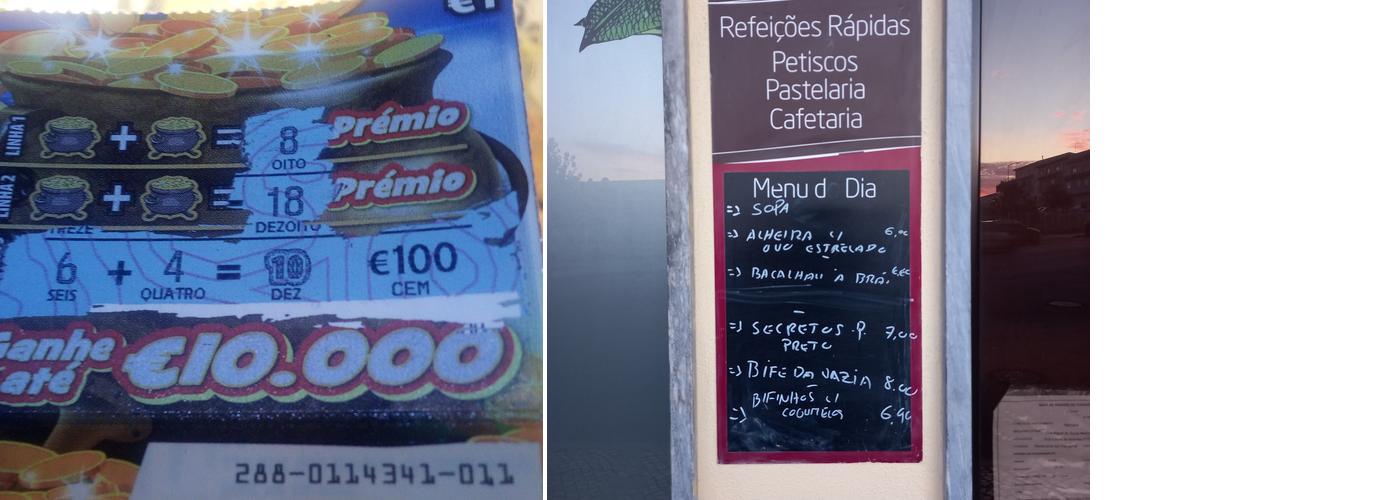 €1
LINHA 1
+ = 8 Prémio
OITO
LINHA 2
+ = 18 Prémio
TREZE DEZOITO
6 + 4 = 10 €100
SEIS QUATRO DEZ CEM
Ganhe até €10.000
288-0114341-011
Refeições Rápidas
Petiscos
Pastelaria
Cafetaria
Menu d Dia
=> SOPA
=> ALHEIRA C/
OVO ESTRELADO
=> BACALHAU À BRÁ.
=> SECRETOS P. 7,00
PRETO
=> BIFE DA VAZIA 8.00
BIFINHOS C/
=> COGUMELO 6,90